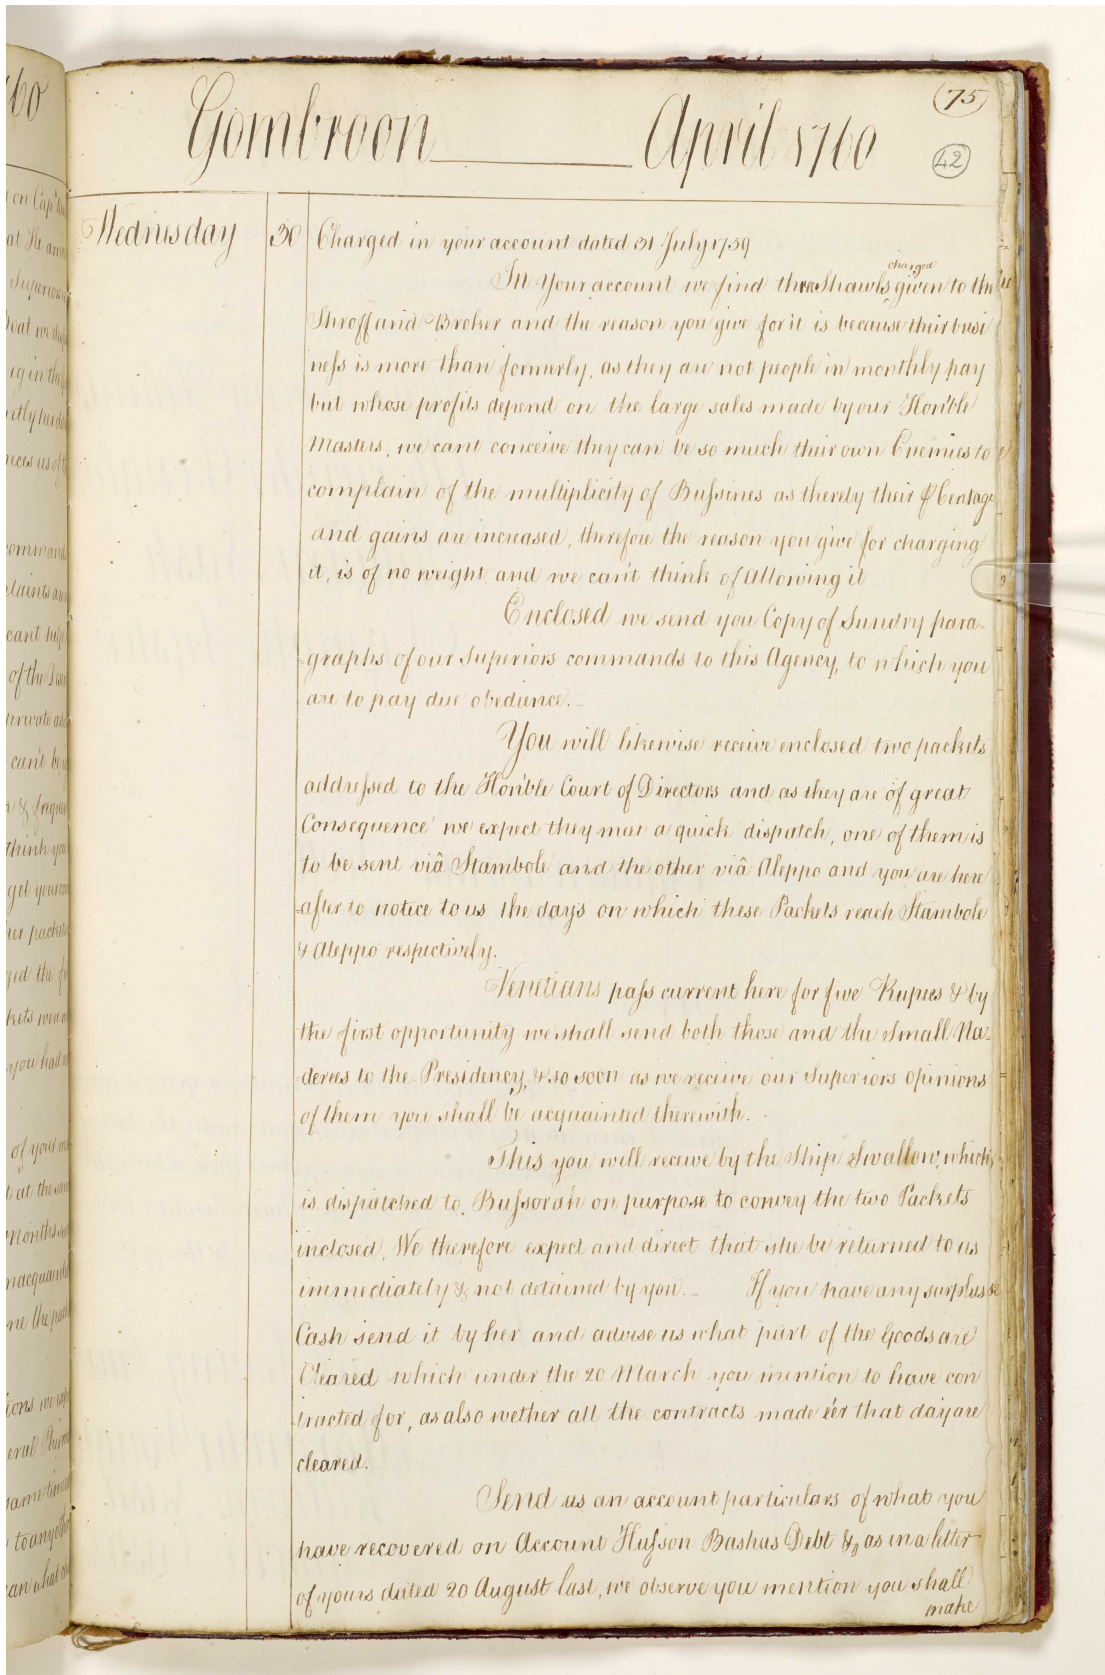 Gombroon April 1760
75
42
Wednesday 30 Charged in your account dated 31 July 1759
charged
In Your account we find three Shawls given to the
Shroff and Broker and the reason you give for it is because their busi
ness is more than formerly, as they are not people in monthly pay
but whose profits depend on the large sales made by our Hon'ble
Masters, we cant conceive they can be so much their own Enemies to
complain of the multiplicity of Bussines as thereby their ⅌ Centage
and gains are increased, therefore the reason you give for charging
it, is of no weight and we can't think of Allowing it
Enclosed we send you Copy of Sundry para-
-graphs of our Superiors commands to this Agency, to which you
are to pay due obedience.-
You will likewise receive enclosed two packets
addressed to the Hon'ble Court of Directors and as they are of great
Consequence we expect they meet a quick dispatch, one of them is
to be sent viâ Stambole and the other viâ Aleppo and you are here
-after to notice to us the days on which these Packets reach Stambole
& Aleppo respectively.
Venetians pass current here for five Rupees & by
the first opportunity we shall send both those and the Small Na-
-derees to the Presidency, & so soon as we receive our Superiors Opinions
of them you shall be acquainted therewith.-
This you will receive by the Ship Swallow, which
is dispatched to Bussorah on purpose to convey the two Packets
inclosed, We therefore expect and direct that she be returned to us
immediately & not detained by you.- If you have any surplusse
Cash send it by her and advise us what part of the Goods are
Cleared which under the 20 March you mention to have con
tracted for, as also wether all the contracts made e'er that day are
cleared.
Send us an account particulars of what you
have recovered on Account Husson Bashas Debt &ca as in a letter
of yours dated 20 August last, we observe you mention you shall
make